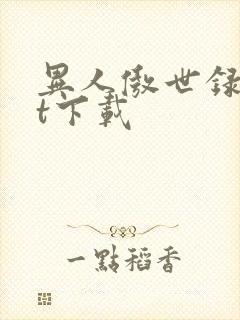 異人傲世録
t下載
一點稻香